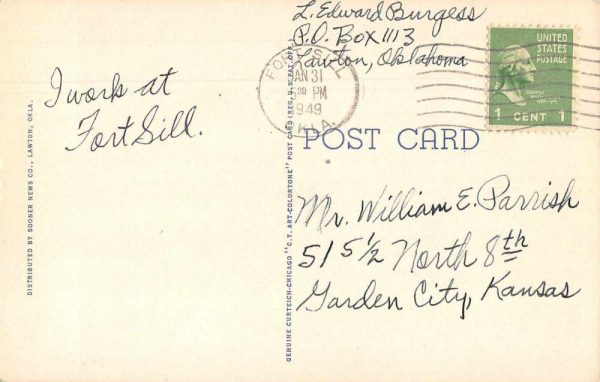 L. Edward Burgess
P.O. Box 1113
Lawton, Oklahoma
UNITED
STATES
POSTAGE
1 CENT 1
FORT SILL
JAN 31
30 PM
1949
OKLA.
I work at
Fort Sill.
POST CARD
Mr. William E. Parrish
515 1/2 North 8th
Garden City, Kansas
DISTRIBUTED BY SOONER NEWS CO., LAWTON, OKLA.
GENUINE CURTEICH-CHICAGO "C.T. ART-COLORTONE" POST CARD (REG. U.S. PAT. OFF.)